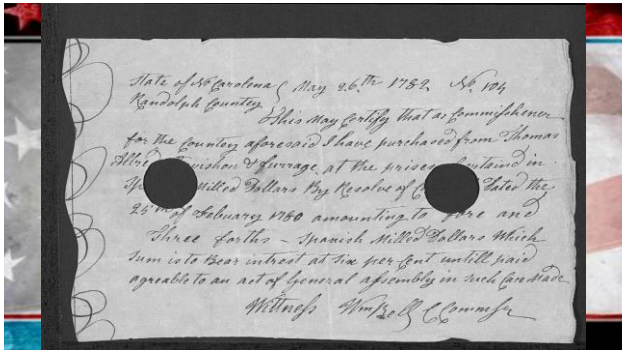 State of No Carolena May 26th 1782 No 104
Randolph Country
This May Certify that as Commisshener
for the Country aforesaid I have purchased from Thomas
Allre vishon & furrage at the prises Contained in
Milled Dollars By Resolve of C Dated the
25th of Febuary 1780 amounting to fore and
Three forths - Spanish Milled Dollars Which
Sum is to Bear intrest at Six per Cent untill paid
agreable to an act of General assembly in such Case Made
Wittness Wm Bell C Commsr